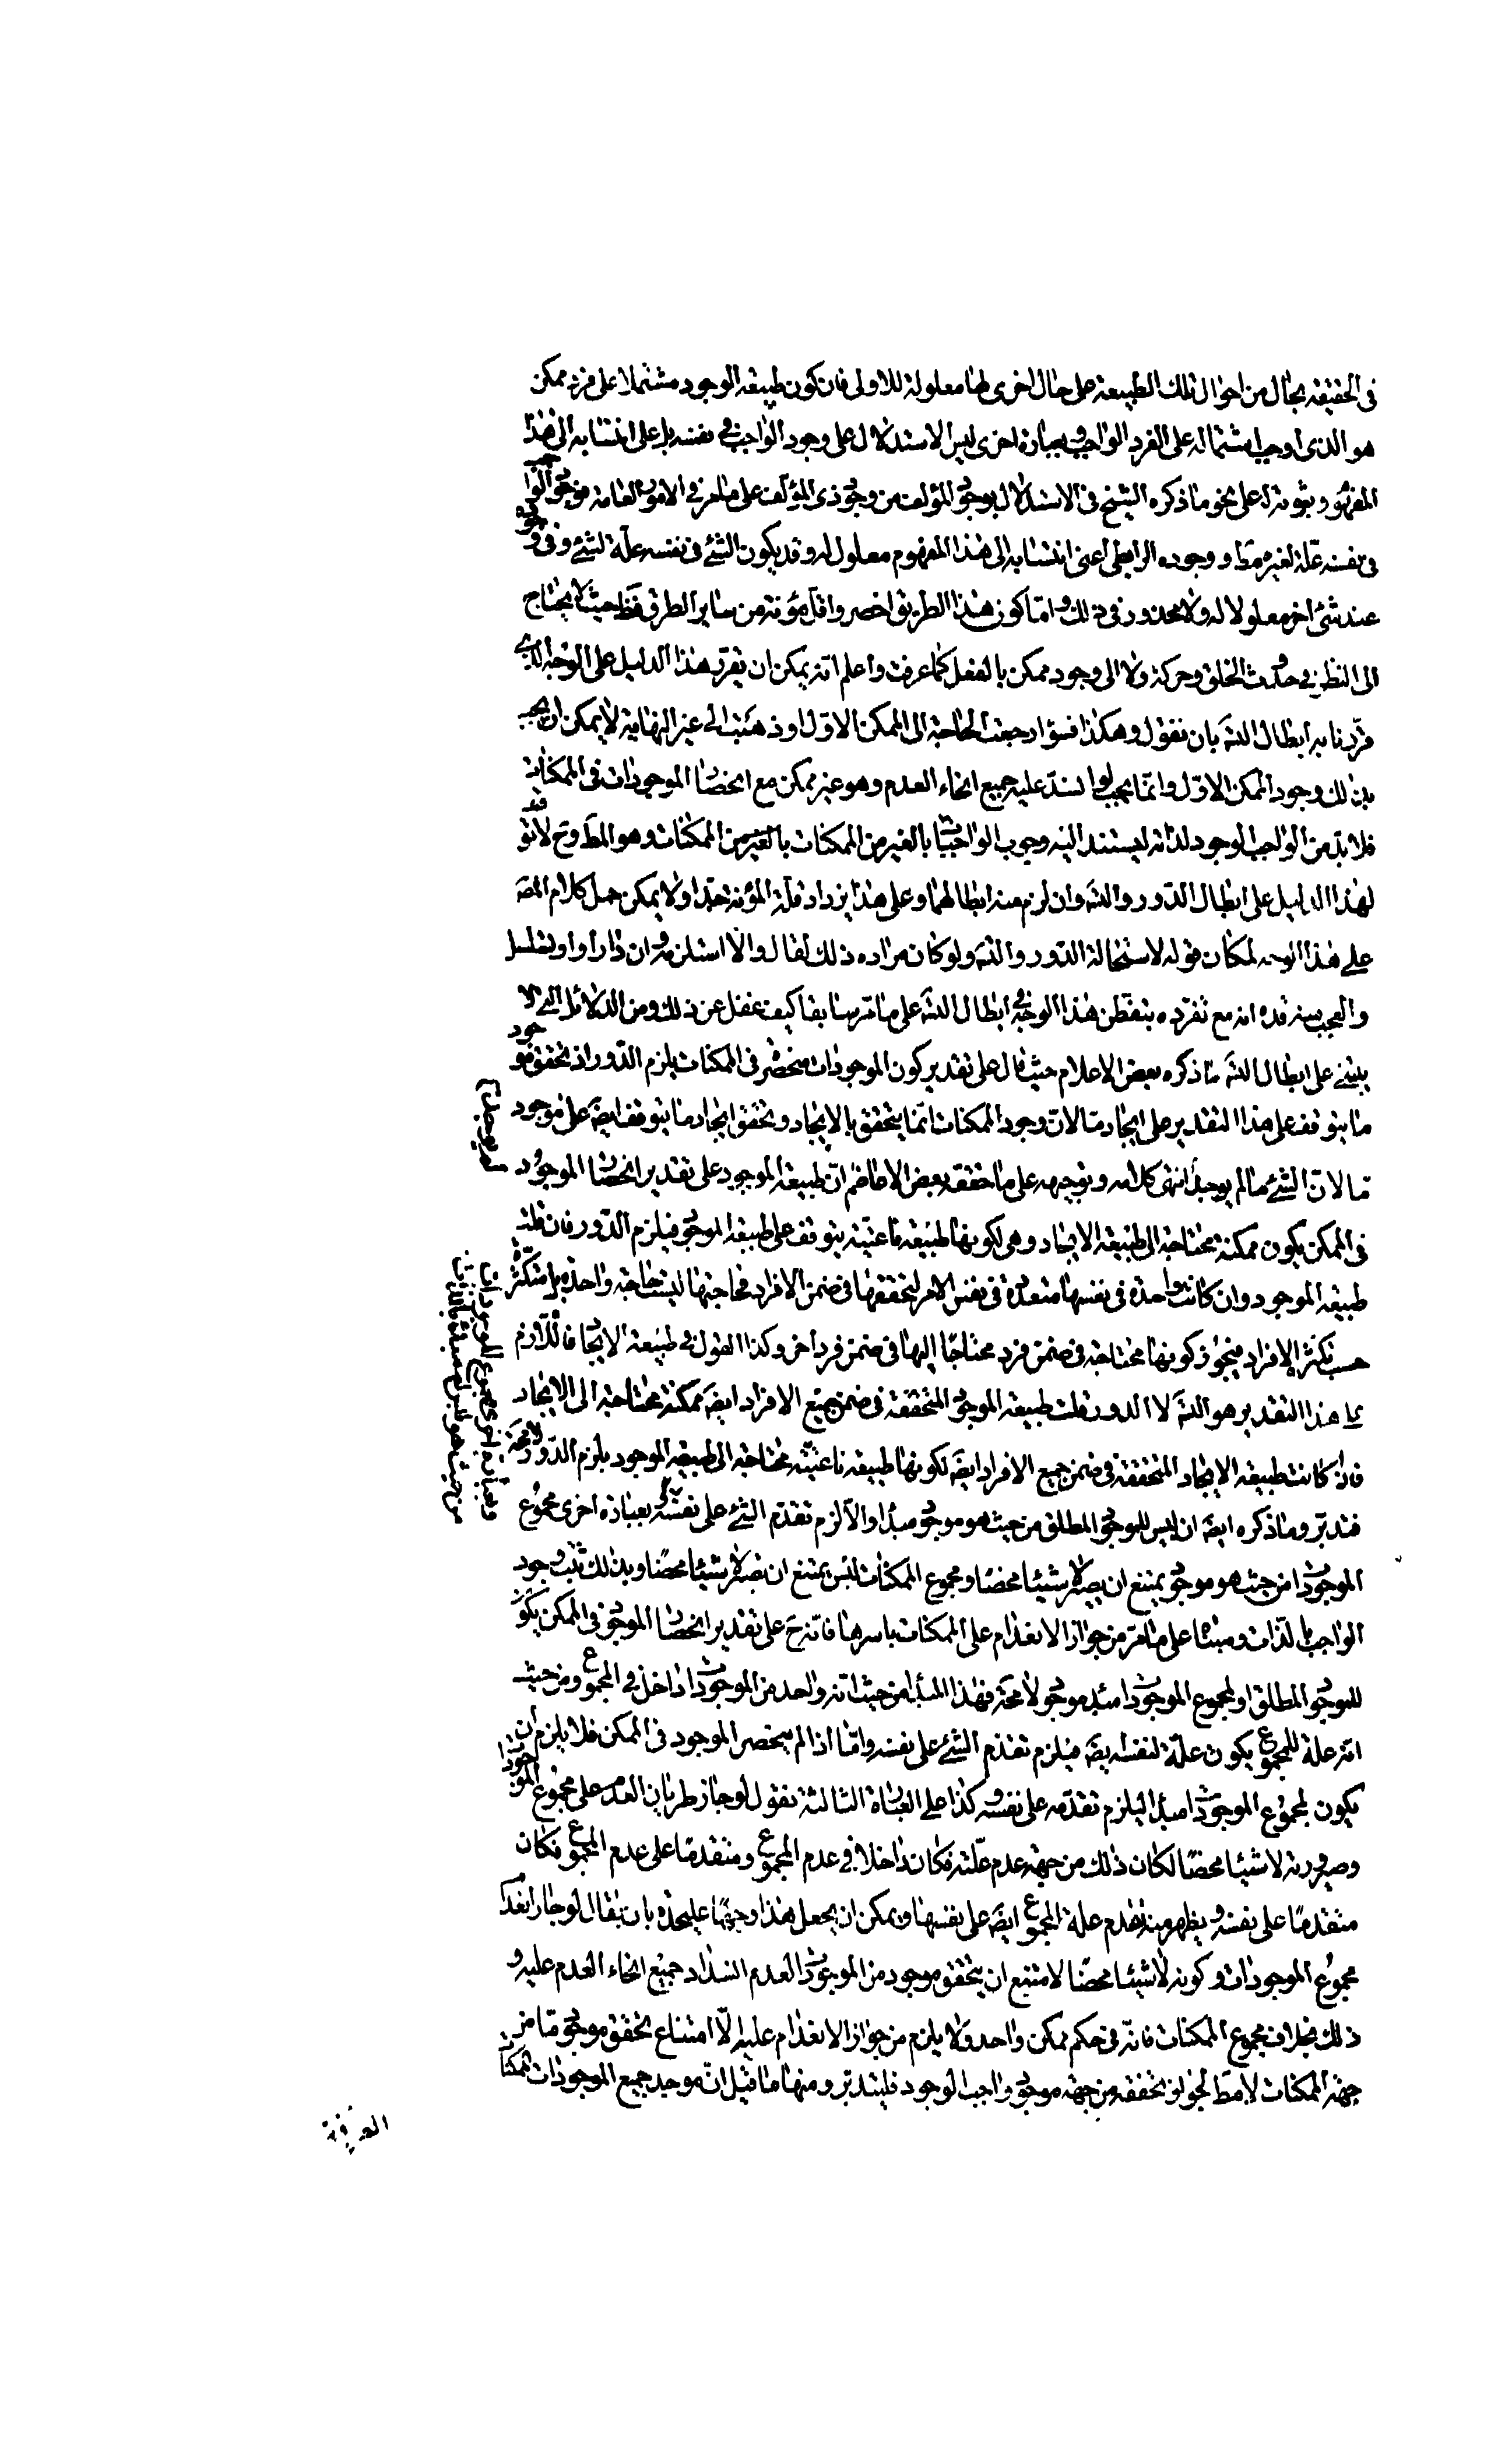 فى الحقيقة بحال من احوال تلك الطبيعة على حال اخرى لها معلولة للاولى فان كون طبيعة الوجود مشتملا على فرد ممكن
هو الذى اوجب اشتماله على الفرد الواجب وبعبارة اخرى ليس الاستدلال على وجود الواجب فى نفسه بل على انتسابه الى هذا
المفهوم وثبوته له على نحو ما ذكره الشيخ فى الاستدلال بوجود المؤلف من وجود ذى المؤلف على ما مر فى الامور العامة فوجود الواجب
فى نفسه علة لغيره مطا ووجوده الرابطى اعنى انتسابه الى هذا المفهوم معلول له وقد يكون الشئ فى نفسه علة لشئ وفى وجوده
عند شئ اخر معلولا له ولا محذور فى ذلك واما كون هذا الطريق اخصر واقل مؤنة من ساير الطرق فظ حيث لا يحتاج
الى النظر فى حدوث الخلق وحركة ولا الى وجود ممكن بالفعل كما عرفت واعلم انه يمكن ان يقرر هذا الدليل على الوجه الذى
قررنا به ابطال التسه بان نقول وهكذا فسواء رجعت الحاجة الى الممكن الاول او ذهبت الى غير النهاية لا يمكن ان يجب
بذلك وجود الممكن الاول وانما يجب لو انسد عليه جميع انحاء العدم وهو غير ممكن مع انحصار الموجودات فى الممكنات
فلا بد من الواجب الوجود لذاته ليستند اليه وجوب الواجبات بالغير من الممكنات وهو المط وح لا توقف
لهذا الدليل على ابطال الدور والتسه وان لزم منه ابطالهما وعلى هذا يزداد قلة المؤنة جدا ولا يمكن حمل كلام المصه
على هذا الوجه لمكان قوله لاستحالة الدور والتسه ولو كان مراده ذلك لقال والا استلزمه وان دار او تسلسل
والعجب منه قده انه مع تفرده بتفطن هذا الوجه فى ابطال التسه على ما مر سابقا كيف غفل عن ذلك ومن الدلائل التى لا
يبتنى على ابطال التسه ما ذكره بعض الاعلام حيث قال على تقدير كون الموجودات منحصرة فى الممكنات يلزم الدور اذ تحقق موجود
ما يتوقف على هذا التقدير على ايجاد ما لان وجود الممكنات انما يتحقق بالايجاد وتحقق ايجاد ما يتوقف ايضه على موجود
ما لان الشئ ما لم يوجد انتهى كلامه وتوجيهه على ما حققه بعض الافاضم ان طبيعة الموجود على تقدير انحصار الموجود
فى الممكن يكون ممكنة محتاجة الى طبيعة الايجاد وهى لكونها طبيعة ناعتية يتوقف على طبيعة الموجود فيلزم الدور فان قلت
طبيعة الموجود وان كانت واحدة فى نفسها متعددة فى نفس الامر لتحققها فى ضمن الافراد فحاجتها ليست حاجة واحدة بل متكثرة
حسب تكثر الافراد فيجوز كونها محتاجة فى ضمن فرد محتاجا اليها فى ضمن فرد اخر وكذا القول فى طبيعة الايجاد فاللازم
على هذا التقدير هو التسه لا الدور قلت طبيعة الموجود المتحققة فى ضمن جميع الافراد ايضه ممكنة محتاجة الى الايجاد
فاذا كانت طبيعة الايجاد المتحققة فى ضمن جميع الافراد ايضه لكونها طبيعة ناعتية محتاجة الى طبيعة الموجود يلزم الدور لا محة
فتدبر وما ذكره ايضه ان ليس للموجود المطلق من حيث هو موجود مبدا والا لزم تقدم الشئ على نفسه وبعبارة اخرى مجموع
الموجودات من حيث هو موجود يمتنع ان يصير لا شيئا محضا ومجموع الممكنات ليس يمتنع ان يصير لا شيئا محضا وبذلك ثبت وجود
الواجب بالذات ومبناه على ما مر من جواز الانعدام على الممكنات باسرها فانه ح على تقدير انحصار الموجود فى الممكن يكون
للموجود المطلق او لمجموع الموجودات مبدا موجود لا محة فهذا المبدا من حيث انه واحد من الموجودات داخل فى المجموع ومن حيث
انه علة للمجموع يكون علة لنفسه ايضه فيلزم تقدم الشئ على نفسه واما اذا لم ينحصر الموجود فى الممكن فلا يلزم ان
يكون لمجموع الموجودات مبدا ليلزم تقدمه على نفسه وكذا على العبارة الثالثة نقول لو جاز طريان العدم على مجموع الموجودات
وصيرورته لا شيئا محضا لكان ذلك من جهة عدم علته فكان داخلا فى عدم المجموع ومتقدما على عدم المجموع فكان
متقدما على نفسه ويظهر منه تقدم علة المجموع ايضه على نفسها ويمكن ان يجعل هذا وجها عليحدة بان يقال لو جاز انعدام
مجموع الموجودات وكونه لا شيئا محضا لامتنع ان يتحقق موجود من الموجودات لعدم انسداد جميع انحاء العدم عليه و
ذلك بخلاف مجموع الممكنات فانه فى حكم ممكن واحد ولا يلزم من جواز الانعدام عليه الا امتناع تحقق موجود ما من
جهة الممكنات لا مطا لجواز تحققه من جهة موجود واجب الوجود فليتدبر ومنها ما قيل ان موجد جميع الموجودات الممكنة